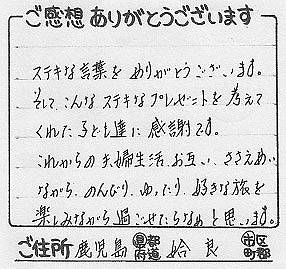 ご感想ありがとうございます
ステキな言葉を ありがとうございます。
そして、こんな ステキな プレゼントを 考えて
くれた 子ども達に 感謝です。
これからの 夫婦生活、お互い、ささえあい
ながら、のんびり、ゆったり、好きな旅を
楽しみながら 過ごせたらなぁと思います。
ご住所 鹿児島 都道府県 姶良 市区町郡